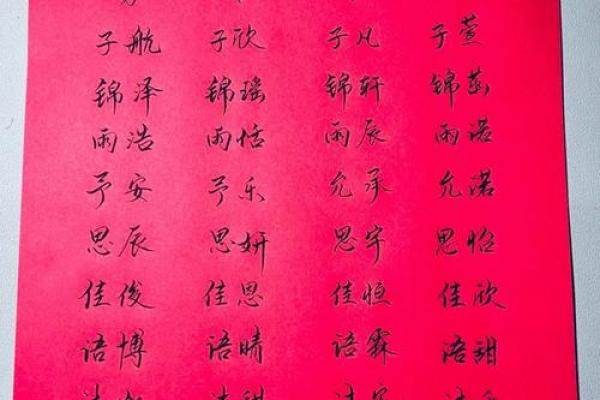 子航 子欣 子凡 子萱
锦泽 锦瑶 锦轩 锦茵
雨浩 雨恬 雨辰 雨诺
予安 予乐 允承 允诺
思辰 思妍 思宇 思怡
佳俊 佳恩 佳恒 佳欣
语博 语晴 语霖 语甜